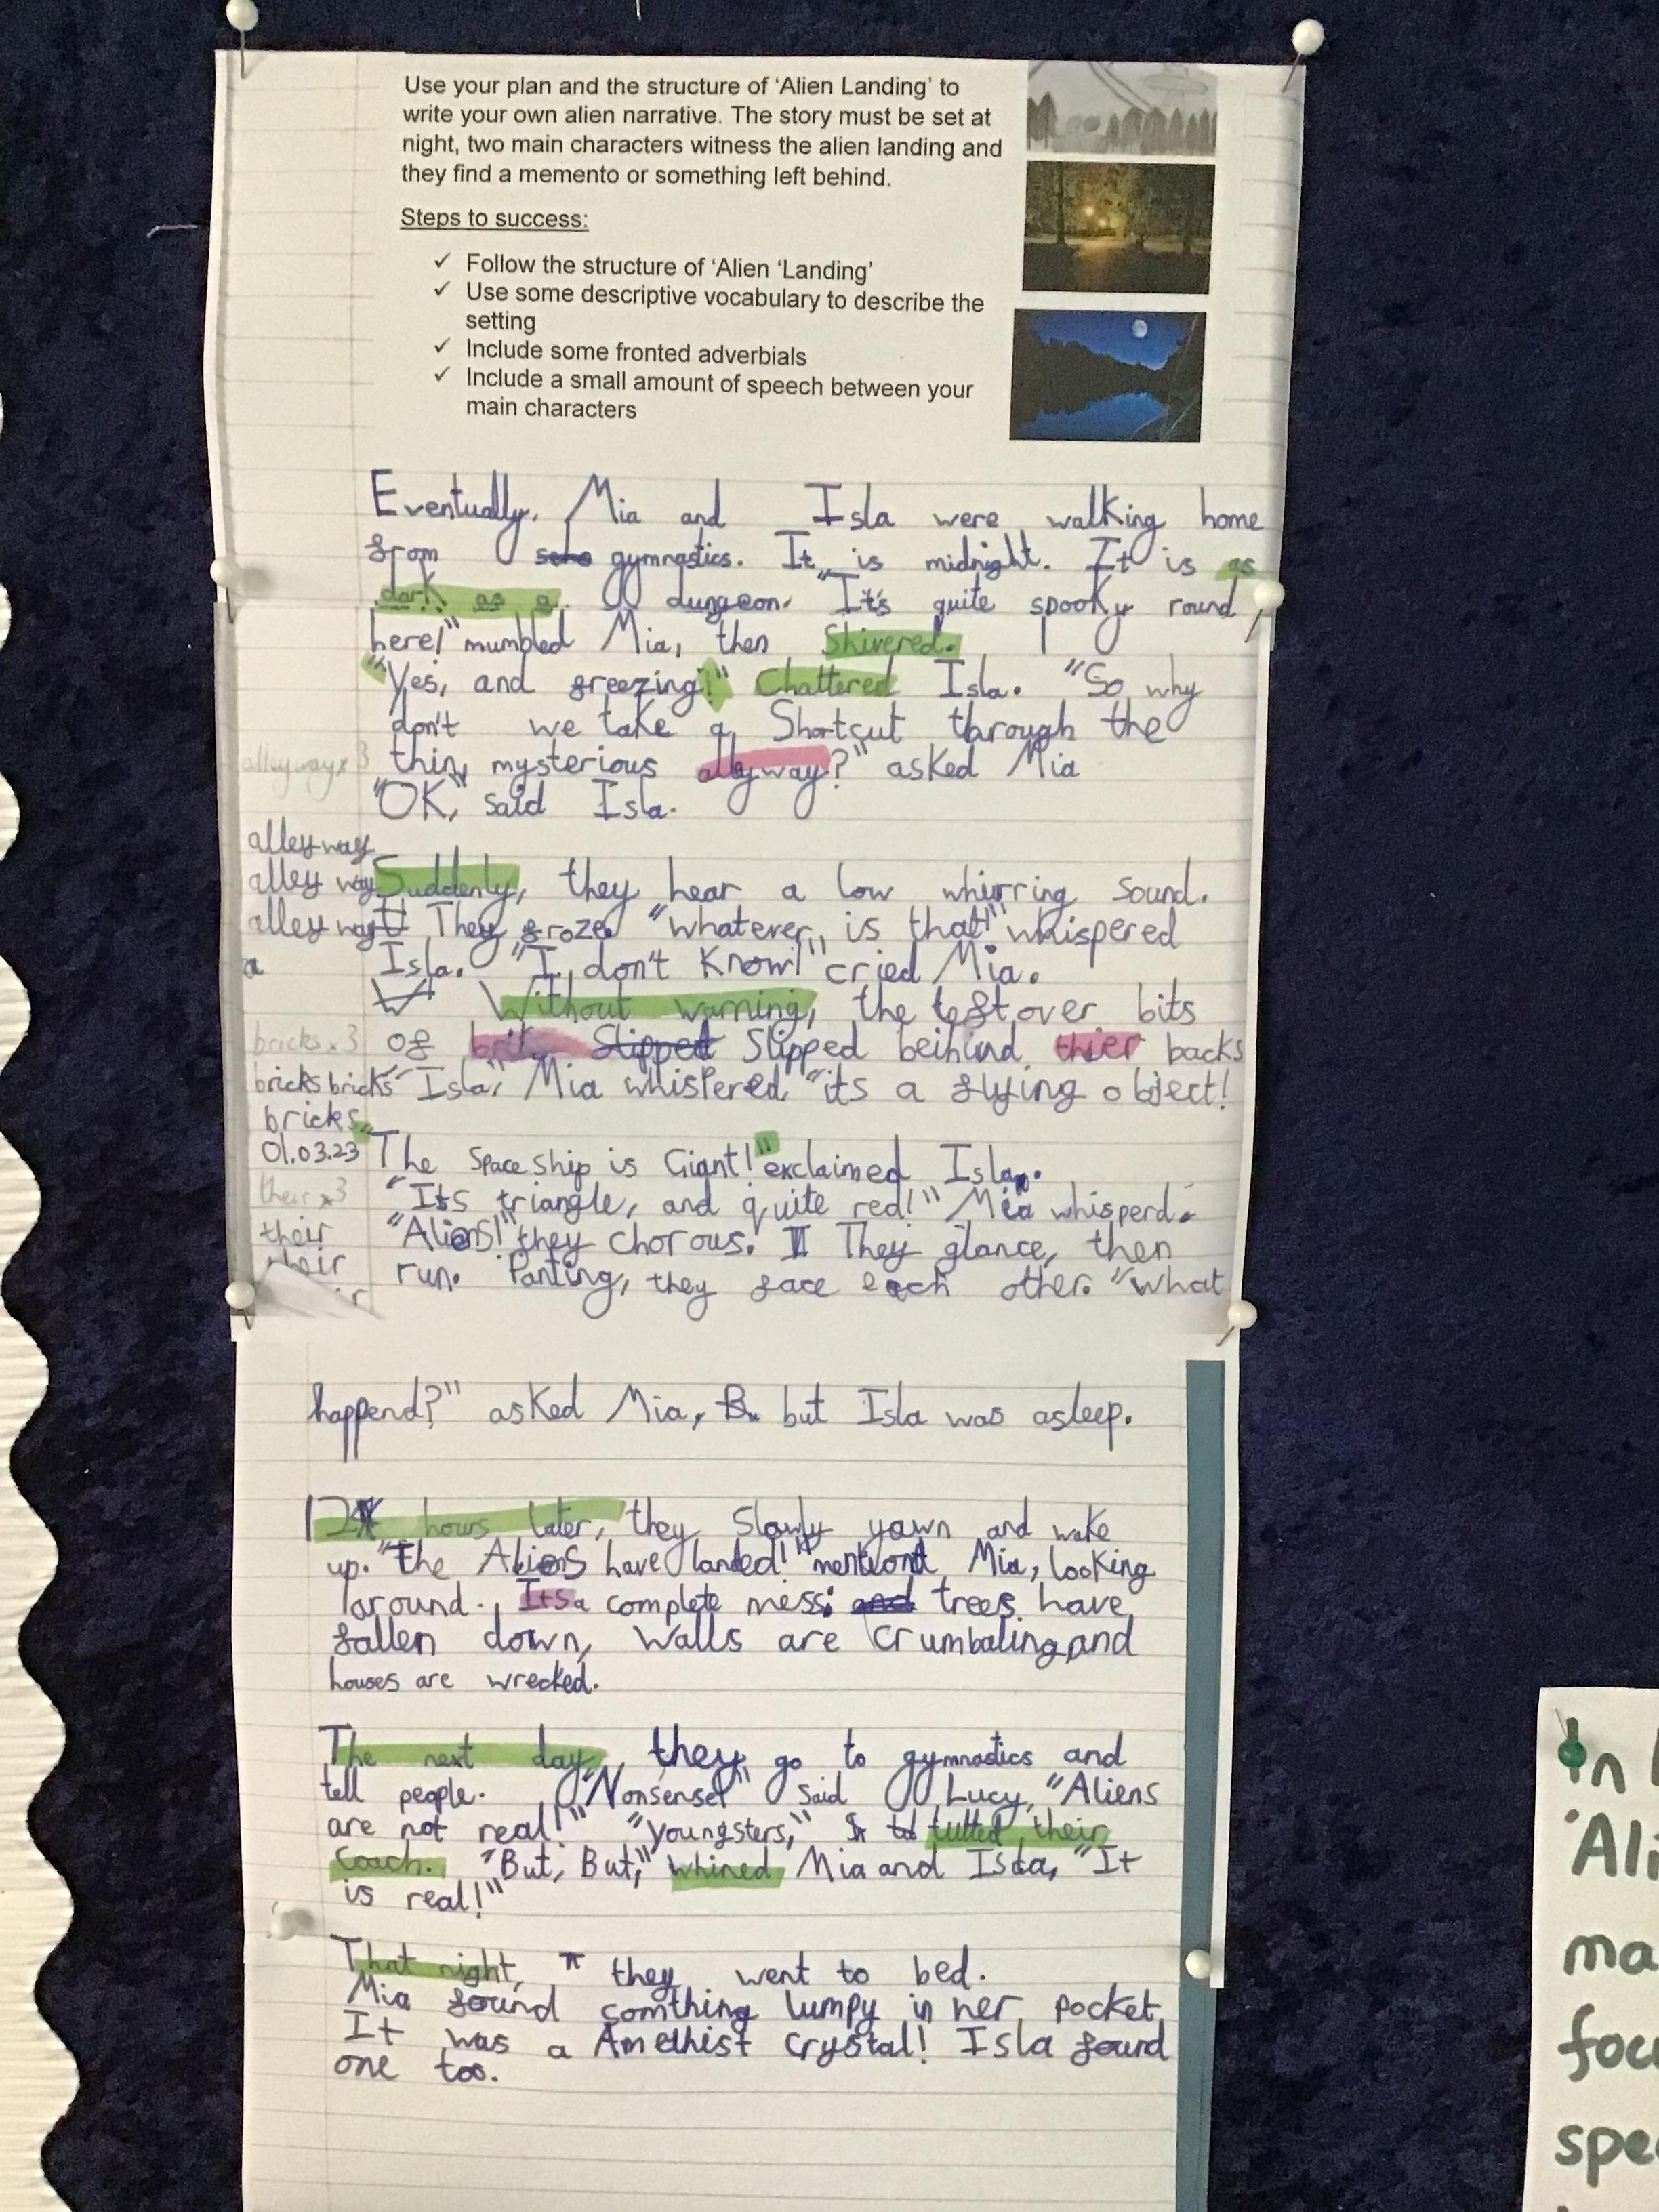 Use your plan and the structure of 'Alien Landing' to
write your own alien narrative. The story must be set at
night, two main characters witness the alien landing and
they find a memento or something left behind.
Steps to success:
✓ Follow the structure of 'Alien 'Landing'
✓ Use some descriptive vocabulary to describe the
setting
✓ Include some fronted adverbials
✓ Include a small amount of speech between your
main characters
Eventually, Mia and Isla were walking home
from gymnastics. It is midnight. It is as
dark as a dungeon. "It's quite spooky round
here!" mumbled Mia, then Shivered.
"Yes, and freezing!" Chattered Isla. "So why
don't we take a Shortcut through the
alleyway x 3
thin, mysterious allyway?" asked Mia
"OK," said Isla.
alleyway
alley way
alley way
a
Suddenly, they hear a low whirring sound.
They froze. "whatever is that!" whispered
Isla. "I don't Know!" cried Mia.
Without warning, the leftover bits
bricks x 3
of briks Slipped Slipped beihind thier backs
bricks bricks
"Isla," Mia whispered "its a flying object!
bricks
01.03.23
"The Space ship is Giant!" exclaimed Isla.
their x 3
"Its triangle, and quite red!" Mia whisperd.
their
"Aliens!" they chorous. They glance, then
their
run. Panting, they face each other. "what
happend?" asked Mia, but Isla was asleep.
12 hours later, they Slowly yawn and wake
up. "the Aliens have landed!" mentiont Mia, looking
around. Its a complete mess: and trees have
fallen down, Walls are crumbaling and
houses are wrecked.
The next day, they go to gymnastics and
tell people. "Nonsense!" said Lucy, "Aliens
are not real!" "youngsters," tutted their
coach. "But, But," whined Mia and Isla, "It
is real!"
That night, they went to bed.
Mia found somthing lumpy in her pocket.
It was a Amethist crystal! Isla found
one too.
In
'Ali
ma
foc
spe